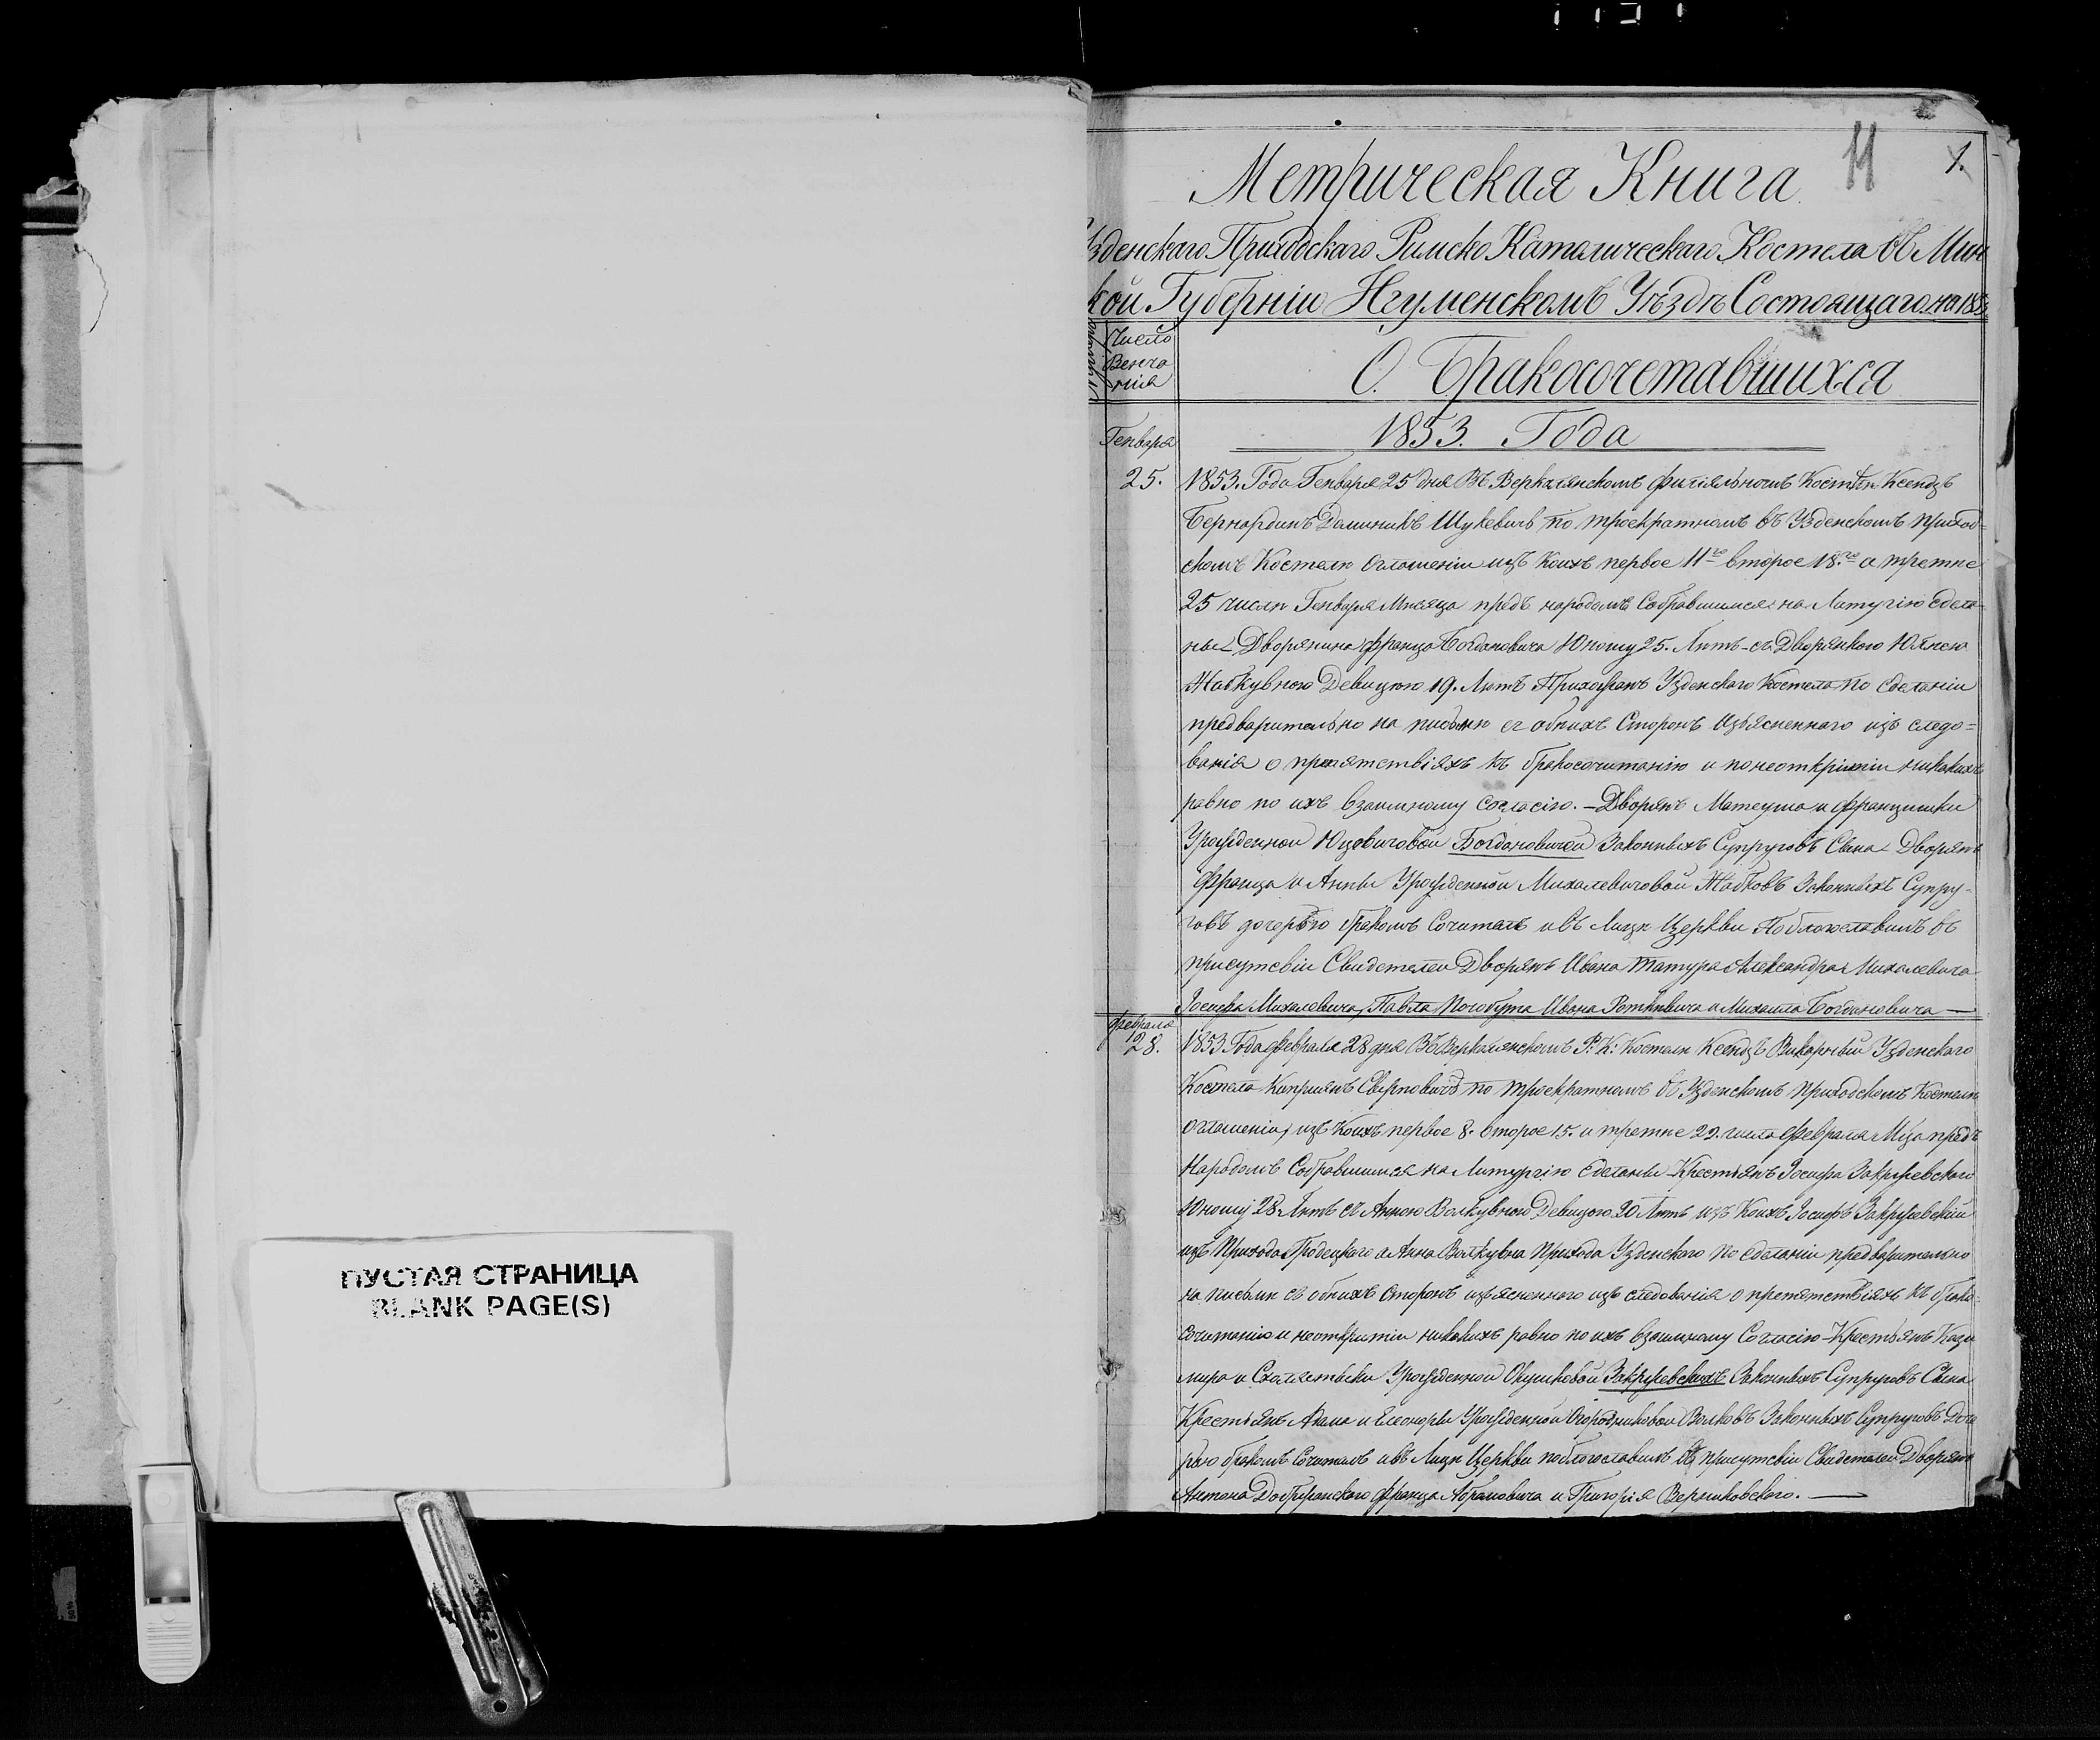 ПУСТАЯ СТРАНИЦА
BLANK PAGE(S)
11 1.
Метрическая Книга
Узденскаго Приходскаго Римско Католическаго Костела въ Мин
кой Губерніи Игуменскомъ Уѣздѣ Состоящаго на 185
Число
Венча
нія
О. Бракосочетавшихся
Генваря
1853. Года
25. 1853. Года Генваря 25 дня Въ Веркалянскомъ филіяльномъ Костелѣ Ксендзъ
Бернардинъ Доминикъ Шукевичъ по троекратномъ въ Узденскомъ приход=
скомъ Костелѣ оглашеніи изъ коихъ первое 11го второе 18.го а третие
25 числѣ Генваря Мѣсяца предъ народомъ Собравшимся на Литургію сдела
ные Дворянина Франца Богдановича Юношу 25. Лѣтъ съ Дворянкою Юлiею
Жабкувною Девицею 19. Лѣтъ Прихожанъ Узденскаго Костела по сделаніи
предварительно на письмѣ съ обоихъ Сторонъ Изъясненнаго изъ следо=
ванія о препятствіяхъ къ бракосочитанію и понеоткрытіи никакихъ
равно по ихъ взаимному согласію. Дворянъ Матеуша и Францишки
Урожденной Юцевичовой Богдановичей Законныхъ Супруговъ Сына Дворянъ
Франца и Анны Урожденной Михалевичовой Жабковъ Законныхъ Супру-
говъ дочерью бракомъ Сочиталъ и въ Лицѣ Церкви Поблогославилъ въ
присутсвіи Свидетелей Дворянъ Ивана Татура Александра Михалевича
Іосифа Михалевича, Павла Ивана и Михаила Богдановича
Февраля
28. 1853 Года Февраля 28 дня Въ Веркалянскомъ Р: К: Костелѣ Ксендзъ Викарный Узденскаго
Костела Каприянъ по троекратномъ въ Узденскомъ приходскомъ Костелѣ
оглашеніи, изъ коихъ первое 8. второе 15. и третие 22. числа Февраля Мца предъ
Народомъ Собравшимся на Литургію сделаны Крестьянъ Іосифа Закржевскаго
Юношу 28 Лѣтъ съ Анною Волкувною Девицею 20 Лѣтъ изъ Коихъ Іосифъ Закржевскій
изъ Прихода Гродецкаго а Анна Волкувна Прихода Узденскаго по сделаніи предварительно
на письмѣ съ обоихъ сторонъ изъясненнаго изъ следованія о препятствіяхъ къ брако
сочитанію и неоткрытіи никакихъ равно по ихъ взаимному Согласію Крестьянъ Кази
мира и Схолястыки Урожденной Окушковой Закржевскихъ Законныхъ Супруговъ Сына
Крестьянъ Адама и Елеоноры Урожденной Огородниковой Волковъ Законныхъ Супруговъ Доче
рью бракомъ Сочиталъ и въ Лицѣ Церкви поблогославилъ въ присутсвіи Свидетелей Дворянъ
Антона Франца Абрамовича и Григорія Верниковскаго.